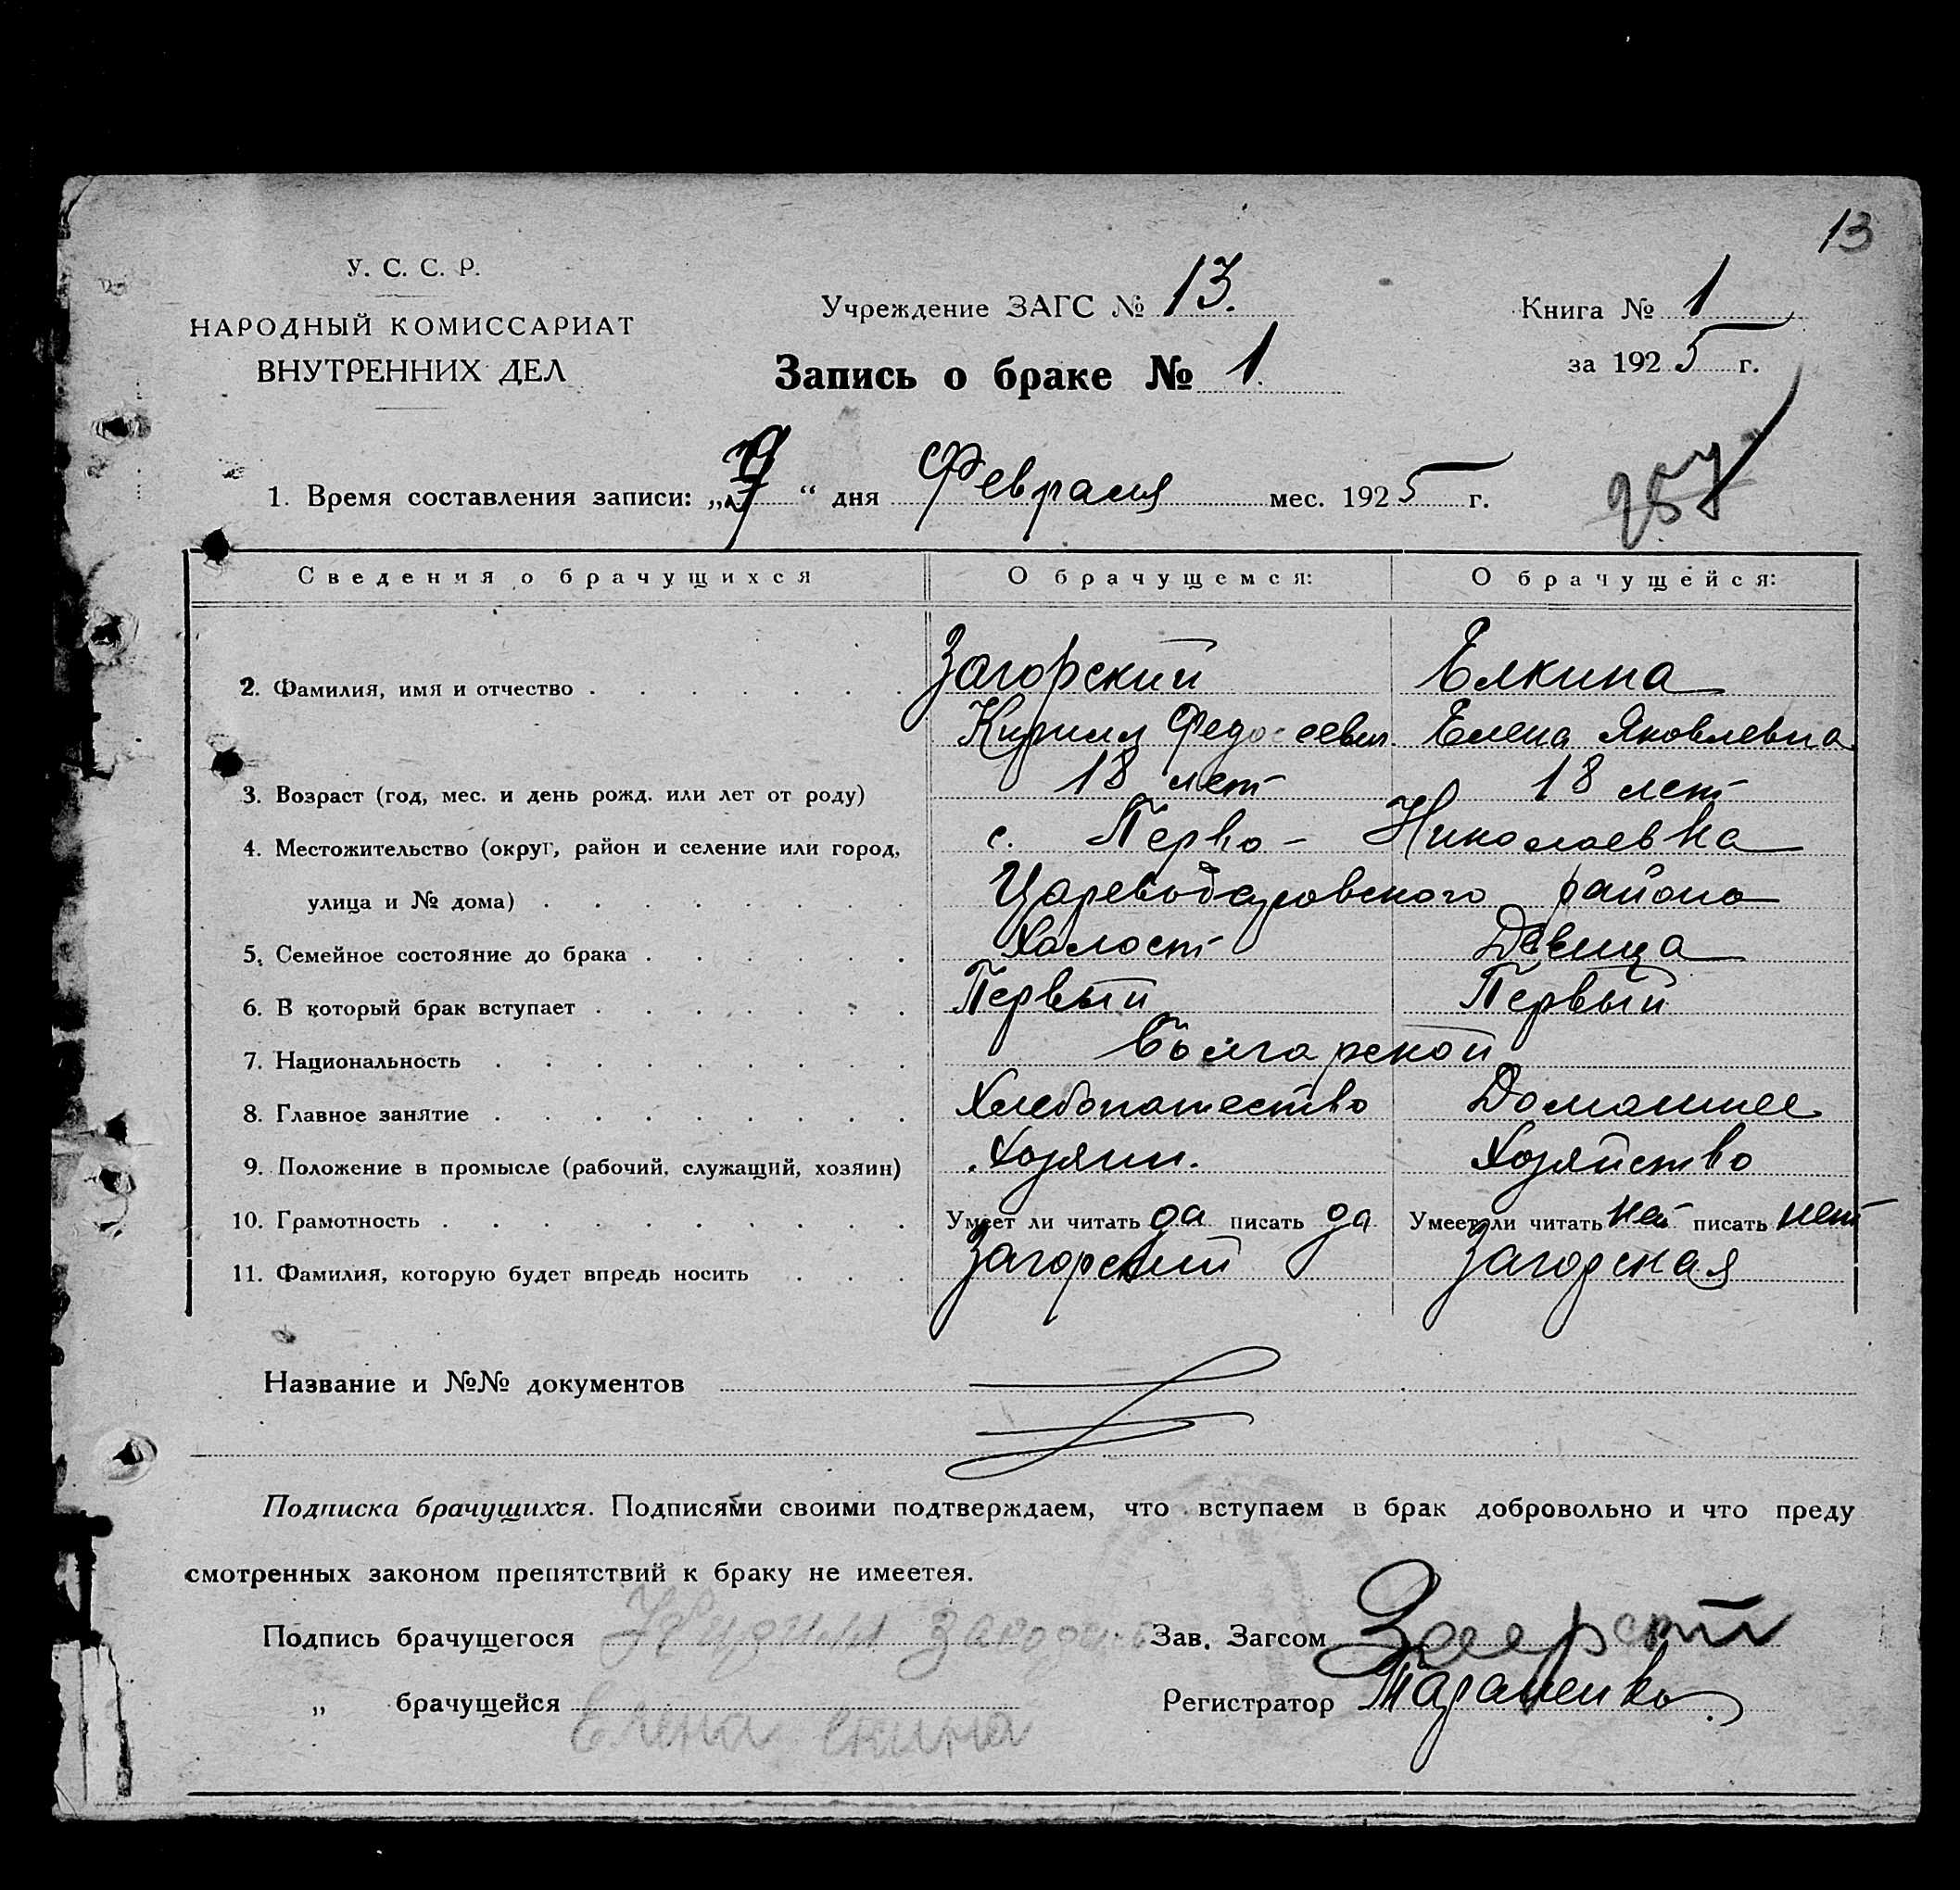 13
У. С. С. Р.
НАРОДНЫЙ КОМИССАРИАТ
ВНУТРЕННИХ ДЕЛ
Учреждение ЗАГС № 13.
Запись о браке № 1.
Книга № 1
за 1925 г.
1. Время составления записи: „ “ дня Февраля мес. 1925 г.
257
Сведения о брачущихся О брачущемся: О брачущейся:
2. Фамилия, имя и отчество Загорский Елкина
Кирилл Федосеевич Елена Яковлевна
3. Возраст (год, мес. и день рожд. или лет от роду) 18 лет 18 лет
4. Местожительство (округ, район и селение или город, с. Перво-Николаевка
улица и № дома) Цареводаровского района
5. Семейное состояние до брака Холост Девица
6. В который брак вступает Первый Первый
7. Национальность Болгарской
8. Главное занятие Хлебопашество Домашнее
9. Положение в промысле (рабочий, служащий, хозяин) Хозяин. Хозяйство
10. Грамотность Умеет ли читать да писать да Умеет ли читать нет писать нет
11. Фамилия, которую будет впредь носить Загорский Загорская
Название и №№ документов
Подписка брачущихся. Подписями своими подтверждаем, что вступаем в брак добровольно и что преду
смотренных законом препятствий к браку не имеетея.
Подпись брачущегося Зав. Загсом
„ брачущейся Елена Регистратор Тараненко